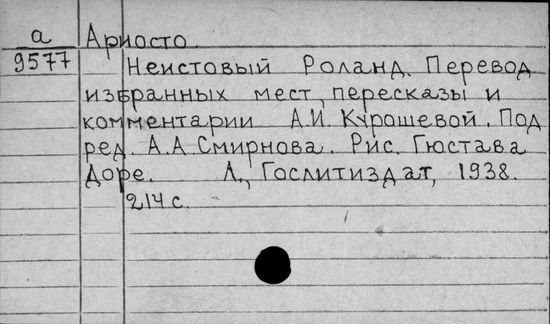 а Ариосто.
9577 Неистовый Роланд. Перевод
избранных мест, пересказы и
комментарии А.И. Курошевой. Под
ред. А.А. Смирнова. Рис. Гюстава
Доре. Л., Гослитиздат, 1938.
214 с.